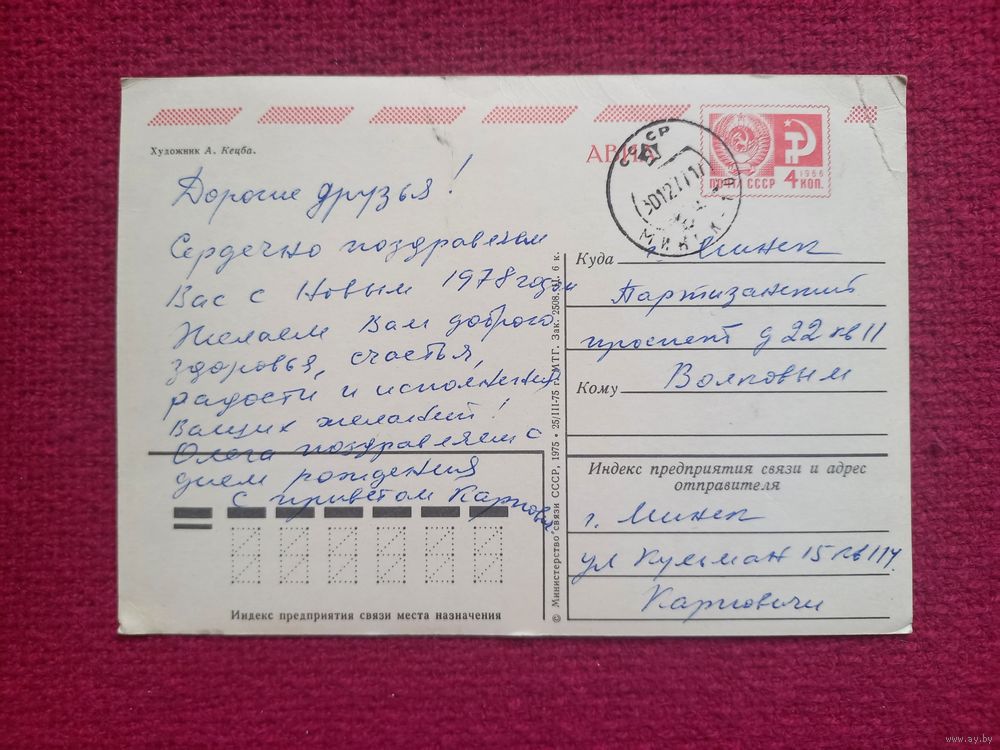 Художник А. Кецба.
АВИА
ПОЧТА СССР
1966
4 КОП.
СССР
МИНСК
Дорогие друзья!
Сердечно поздравляем
Вас с Новым 1978 годом
Желаем Вам доброго
здоровья, счастья,
радости и исполнения
Ваших желаний!
Олега поздравляем с
днем рождения
с приветом Карпович
Куда г. Минск
Партизанский
проспект д 22 кв 11
Кому Волковым
Индекс предприятия связи и адрес
отправителя
г. Минск
ул Кульман 15 кв 114
Карповичи
Индекс предприятия связи места назначения
© Министерство связи СССР, 1975 • 25/III-75 г. МТГ. Зак. 2508. Ц. 6 к.
www.ay.by